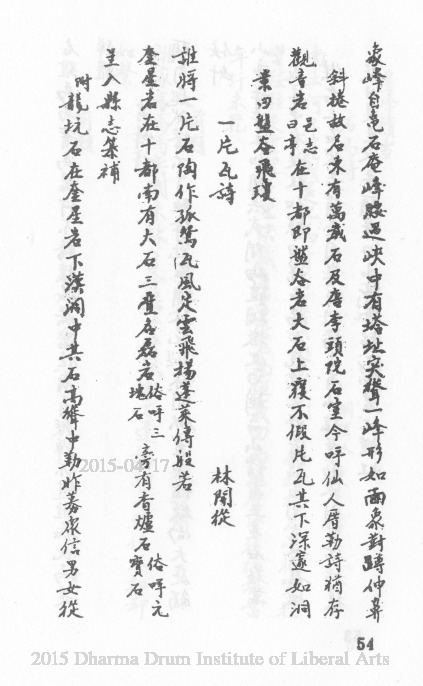 象峰自亀石庵峰腰過峽中有塔址突聳一峰形如兩象對蹲伸鼻
斜捲故名来有萬歲石及唐李頭院石室今呼仙人厝勒詩猶存
觀音岩邑志曰亭在十都即盤谷岩大石上覆不假片瓦其下深邃如洞
業曰盤谷飛瓊
一片瓦詩
林閑從
誰將一片石陶作孤鴛瓦風定雲飛揚蓬萊傳般若
奎星岩在十都南有大石三疊名磊岩俗呼三塊石旁有香爐石俗呼元寶石
呈入縣志集補
附龍坑石在奎星岩下溪澗中其石高聳中勒昨募眾信男女從
2015-04-17
54
2015 Dharma Drum Institute of Liberal Arts